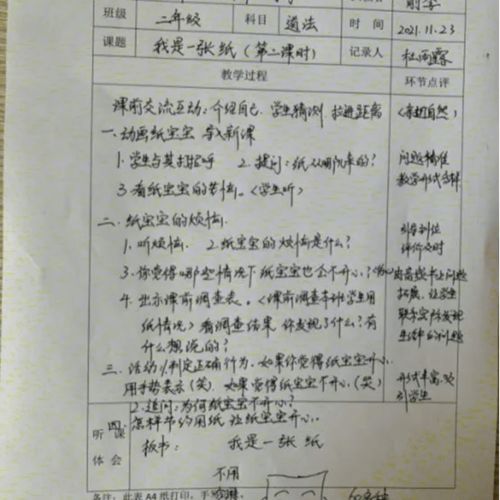 班级 二年级 科目 道法 时间 2021.11.23
课题 我是一张纸（第二课时） 记录人
教学过程 环节点评
课前交流互动：介绍自己 学生猜测 拉近距离 （亲切自然）
一、动画纸宝宝 导入新课
1.学生与其打招呼 2.提问：纸从哪儿来的？ 问题精准
3.看纸宝宝的苦恼。（学生听） 教学形式多样
二、纸宝宝的烦恼.
1.听烦恼. 2.纸宝宝的烦恼是什么？ 引导到位
评价及时
3.你觉得哪些情况下纸宝宝也会不开心？
4.出示课前调查表。（课前调查本班学生用 拓展，让学生
纸情况）看调查结果 你发现了什么？有 联系实际发现
什么想说的？ 生活中的问题
三、活动1.判定正确行为.如果你觉得纸宝宝开心
用手势表示（笑） 如果觉得纸宝宝不开心（哭） 形式丰富
2.追问：为何纸宝宝不开心？ 引学生
四.怎样节约用纸 让纸宝宝开心.
听课体会 板书： 我是一张纸
不用
备注：此表A4纸打印，手